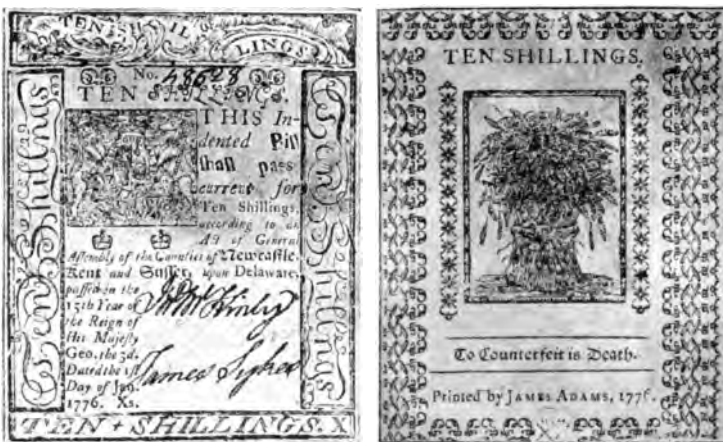 TEN SHILLINGS
No. 48628
TEN SHILLINGS.
THIS In-
dented Bill
shall pass
current for
Ten Shillings,
according to an
Act of General
Assembly of the Counties of Newcastle,
Kent and Sussex, upon Delaware,
passed in the
15th Year of
the Reign of
His Majesty
Geo. the 3d.
Dated the 1st
Day of Jan.
1776. Xs.
James Sykes
Ten Shillings
Ten Shillings
TEN SHILLINGS. X
TEN SHILLINGS.
To Counterfeit is Death.
Printed by JAMES ADAMS, 1776.